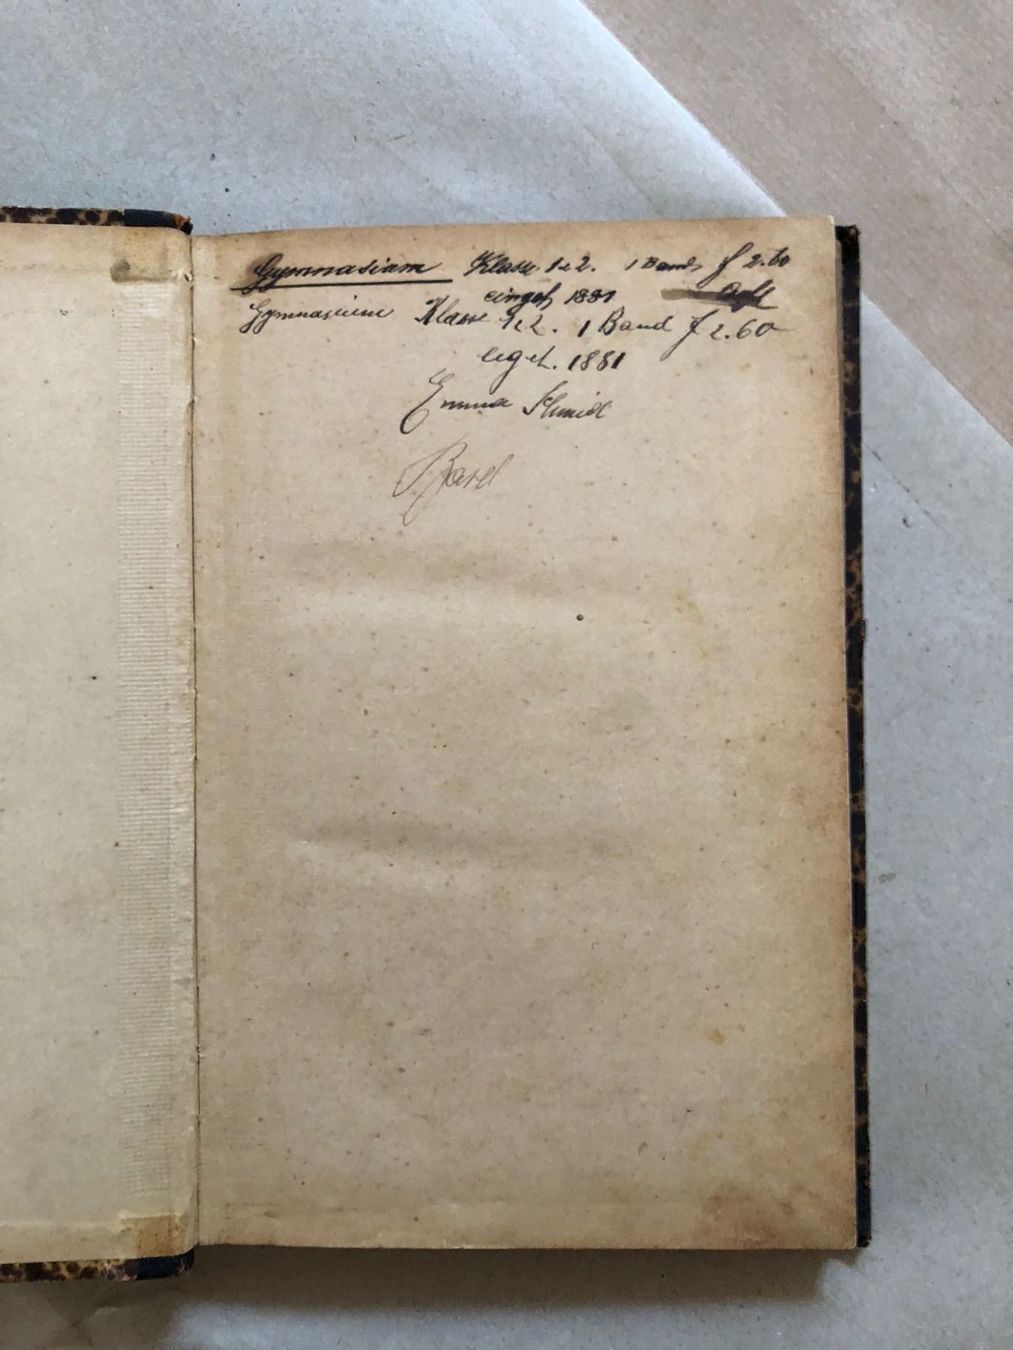 Gymnasium Klasse 1 & 2. 1 Band f 2.60
1881
Gymnasium Klasse 1 & 2. 1 Band f 2.60
1881
Emma Schmid
Basel